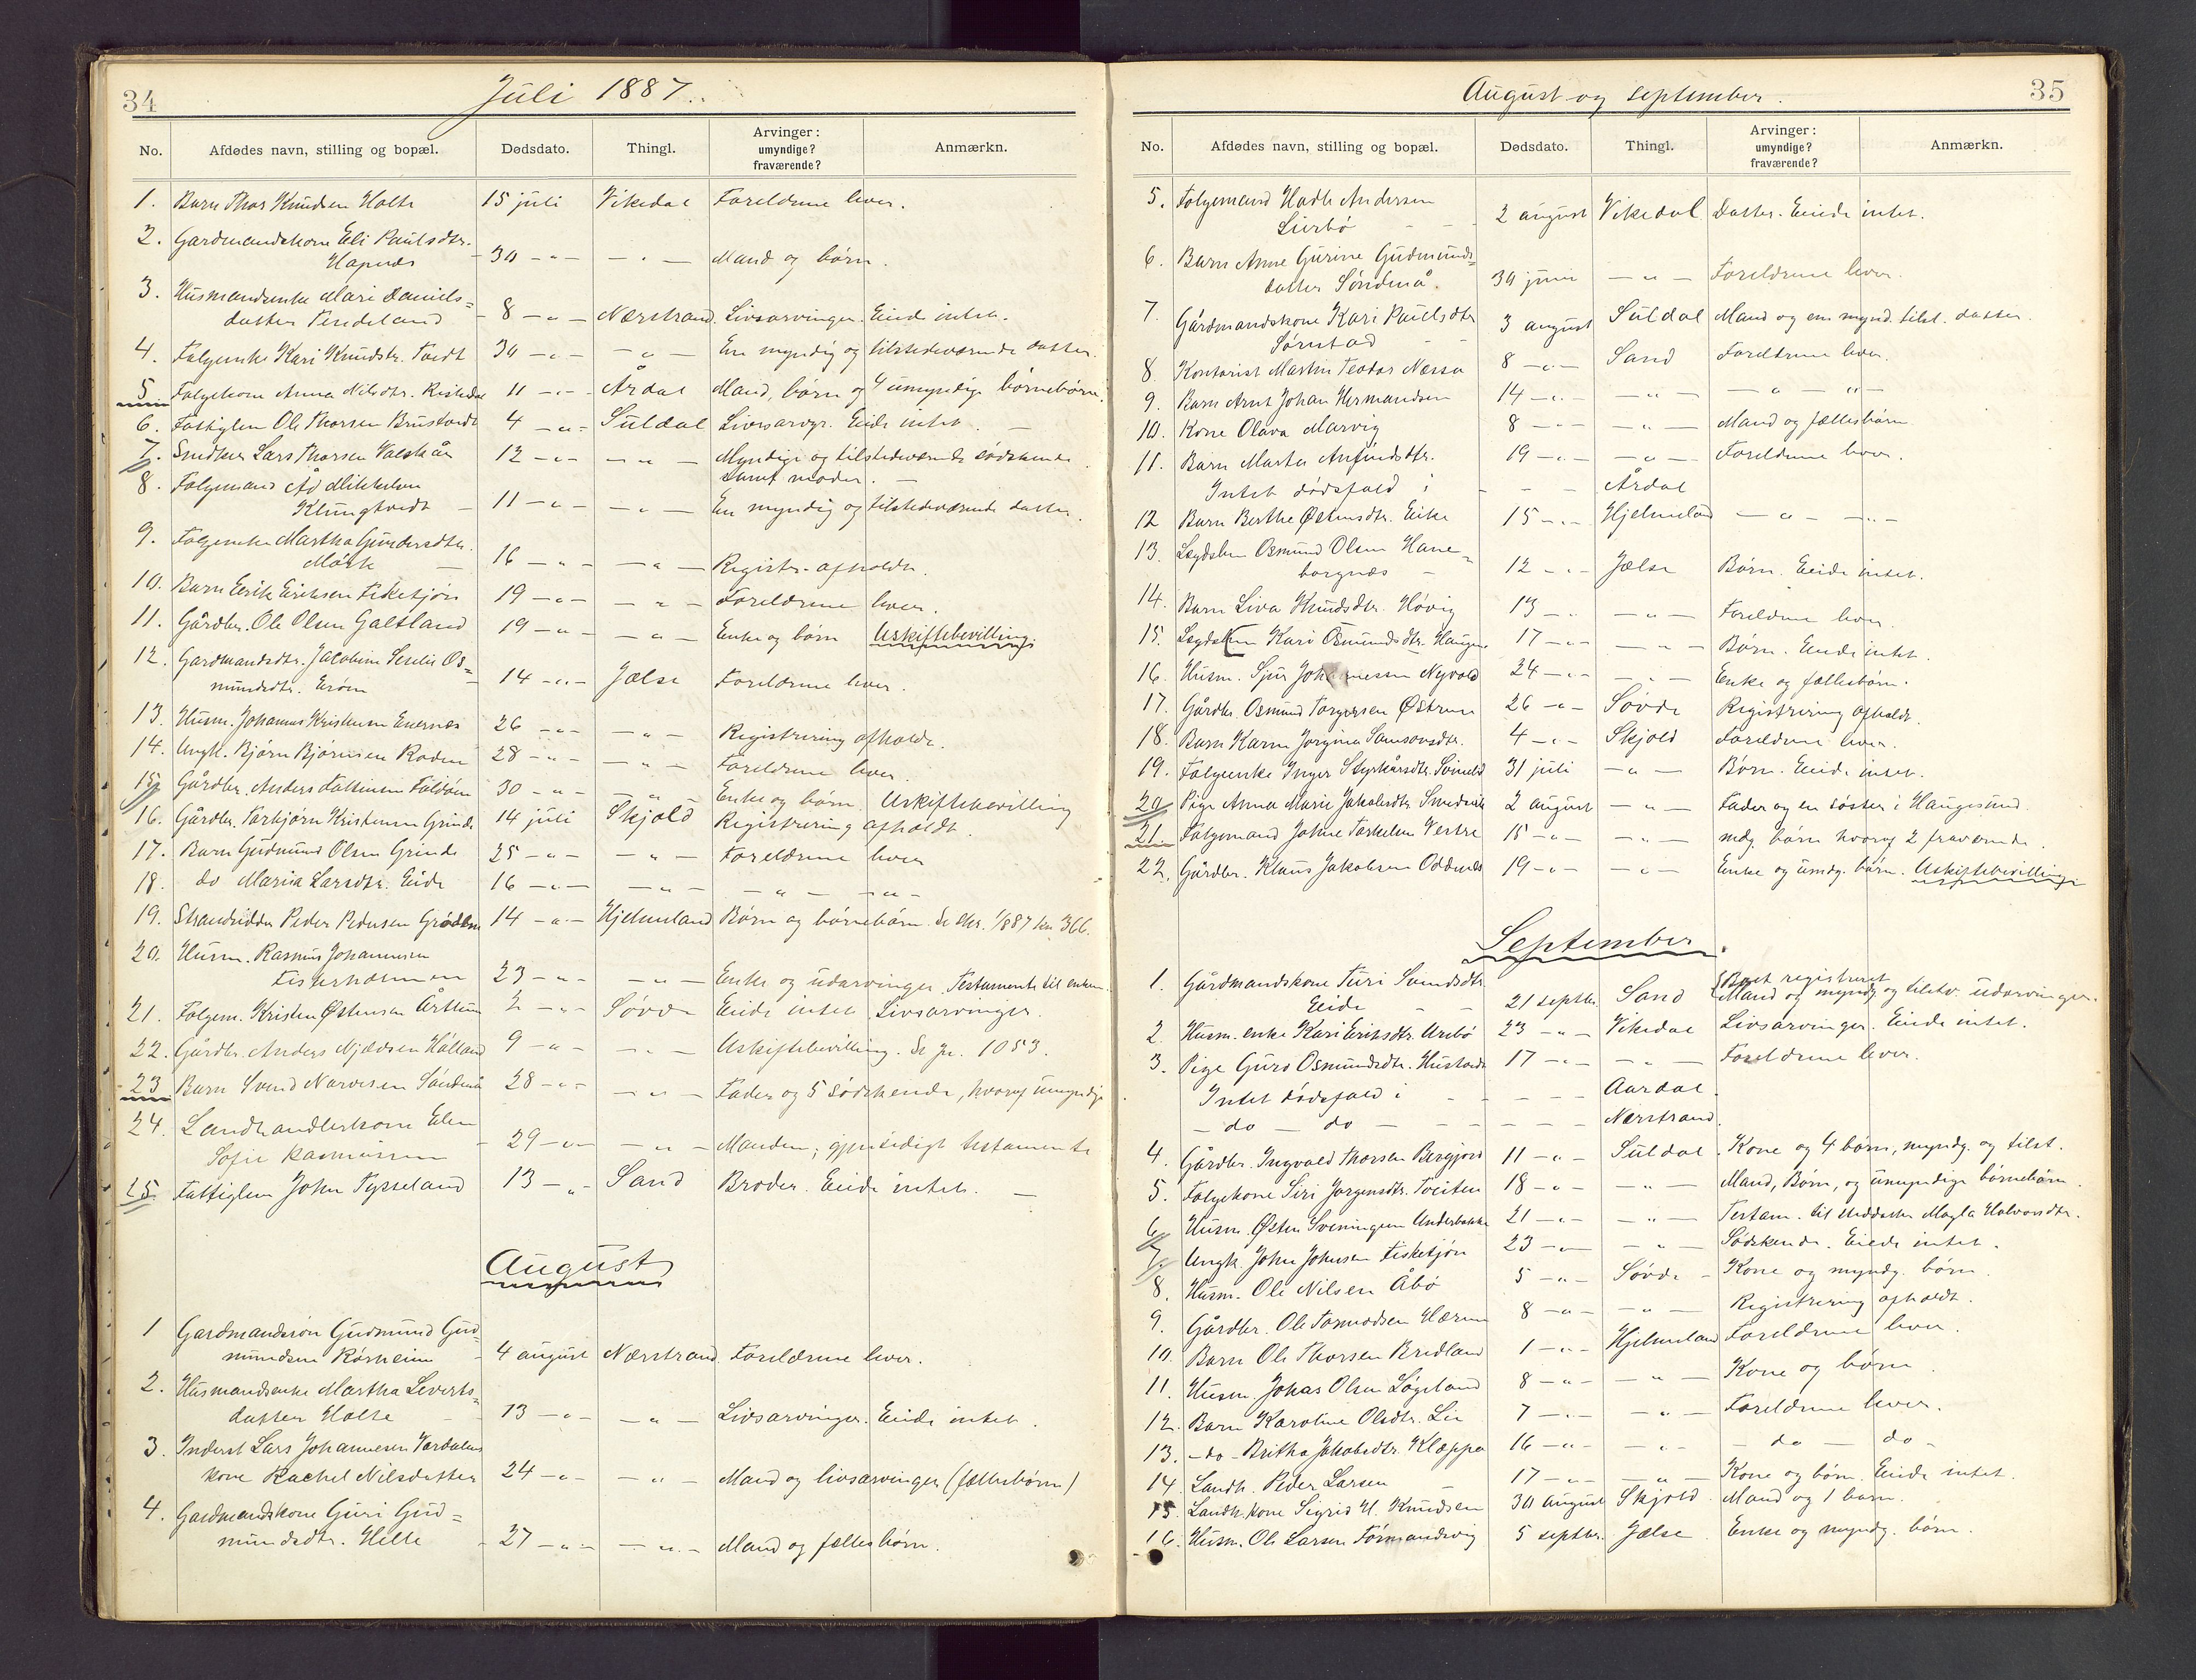 34
Juli 1887.
No. Afdødes navn, stilling og bopæl. Dødsdato. Thingl. Arvinger: umyndige? fraværende? Anmærkn.
1. Barn Thor Knudsen Holte 15 juli Vikedal Forældrene lever.
2. Gardmandskone Eli Paulsdtr.
Hapnes 30 -"- -"- Mand og børn.
3. Husmandsenke Mari Daniels=
datter Tindeland 8 -"- Nærstrand. Livsarvinger. Eiede intet.
4. Folgeenke Kari Knudsdtr. Tvedt 30 -"- -"- En myndig og tilstedeværende datter.
5 Folgekone Anna Nilsdtr. Riskedal 11 -"- Årdal Mand, børn og 4 umyndige børnebørn.
6. Fattiglem Ole Thorsen Brustveit 4 -"- Suldal Livsarvgr. Eiede intet.
7. Snedker Lars Thorsen Valskår 12 -"- -"- Myndige og tilstedeværende sødskende
samt moder.
8. Folgemand Åd Mikkelsen
Klungtvedt 11 -"- -"- En myndig og tilstedeværende datter.
9. Folgeenke Martha Gundersdtr.
Mørk 16 -"- -"- Registr. afholdt.
10. Barn Eirik Eiriksen Fisketjøn 19 -"- -"- Forældrene lever.
11. Gårdbr. Ole Olsen Galtland 19 -"- -"- Enke og børn Uskiftebevilling.
12. Gardmandsdtr. Jacobine Serelie Os=
mundsdtr. Erøen 14 -"- Jælse Forældrene lever.
13. Husm. Johannes Kristensen Enernes 26 -"- -"- Registrering afholdt.
14. Ungk. Bjørn Bjørnsen Roden 28 -"- -"- Forældrene lever.
15. Gårdbr. Anders Foldøen 30 -"- -"- Enke og børn. Uskiftebevilling
16. Gårdbr. Torbjørn Kristensen Grinde 14 juli Skjold Registrering afholdt.
17. Barn Gudmund Olsen Grinde 25 -"- -"- Forældrene lever
18. do Maria Larsdtr. Eide 16 -"- -"- -"- -"-
19. Strandsidder Peder Pedersen Grødem 14 -"- Hjelmeland Børn og børnebørn. Se 1/887 366.
20. Husm. Rasmus Johannesen
Fiskerholmen 23 -"- -"- Enke og udarvinger. Testamente til enken.
21. Folgem. Kristen Østensen Årthun 2 -"- Søvde Eiede intet Livsarvinger.
22. Gårdbr. Anders Njædsen Håland 9 -"- -"- Uskiftebevilling. Se Jr. 1053.
23 Barn Svend Narvesen Søndenå 28 -"- -"- Fader og 5 sødskende, hvoraf umyndige
24. Landhandlerkone Elen
Sofie Rasmussen 29 -"- -"- Manden; gjensidigt testamente
25 Fattiglem John Tysseland 13 -"- Sand Broder. Eiede intet.
August
1 Gardmandssøn Gudmund Gud=
mundsen Rørheim 4 august Nærstrand. Forældrene lever.
2. Husmandsenke Martha Siverts=
datter Holte 13 -"- -"- Livsarvinger. Eiede intet.
3. Inderst Lars Johannesen Vardalens
kone Rachel Nilsdatter 24 -"- -"- Mand og livsarvinger (fællesbørn)
4. Gardmandskone Guri Gud=
mundsdtr. Helle 27 -"- -"- Mand og fællesbørn.
35
August og september.
No. Afdødes navn, stilling og bopæl. Dødsdato. Thingl. Arvinger: umyndige? fraværende? Anmærkn.
5. Folgemand Hadle Andersen
Lierbø 2 august Vikedal Datter. Eiede intet.
6. Barn Anne Gurine Gudmunds=
datter Søndenå. 30 juni -"- Forældrene lever.
7. Gårdmandskone Kari Paulsdtr
Sørestad 3 august Suldal Mand og en mynd. tilst. datter.
8. Kontorist Martin Teodor Næssa 8 -"- Sand Forældrene lever.
9. Barn Arnt Johan Hermandsen 14 -"- -"- -"- -"-
10. Kone Olava Marvig 8 -"- -"- Mand og fællesbørn
11. Barn Marta Anfindsdtr. 19 -"- -"- Forældrene lever.
Intet dødsfald i - - - Årdal
12 Barn Berthe Østensdtr. Eike 15 -"- Hjelmeland -"- -"-
13. Lægdslem Osmund Olsen Hane=
borgnes 12 -"- Jælse Børn. Eiede intet.
14. Barn Liva Knudsdtr. Høvig 13 -"- -"- Forældrene lever.
15. Lægdslem Kari Osmundsdtr. Haugen 17 -"- -"- Børn. Eiede intet.
16. Husm. Sjur Johannessen Nyvold 24 -"- -"- Enke og fællesbørn.
17. Gårdbr. Osmund Torgersen Østrem 26 -"- Søvde Registrering afholdt.
18. Barn Karen Jorgina Samsonsdtr. 4 -"- Skjold Forældrene lever.
19. Folgeenke Inger Styrkårsdtr. 31 juli -"- Børn. Eiede intet.
20. Pige Anna Marie Jakobsdtr. 2 august -"- Fader og en søster i Haugesund.
21. Folgemand Johne Torkelsen Vestre 15 -"- -"- mdg. børn hvoraf 2 fraværende.
22. Gårdbr. Klaus Jakobsen Oddenes 19 -"- -"- Enke og umdg. børn. Uskiftebevilling
September.
1. Gårdmandskone Turi Svendsdtr
Eide 21 septbr. Sand {Boet registreret
Mand og myndg og tilstv. udarvinger.
2. Husm. enke Kari Eriksdtr. Urebø 23 -"- Vikedal Livsarvinger. Eiede intet.
3. Pige Guro Osmundsdtr. Hustvedt 17 -"- -"- Forældrene lever.
Intet dødsfald i - - - Aardal.
- do - do - - - - Nærstrand.
4. Gårdbr. Ingvald Thorsen Bergjord 11 -"- Suldal. Kone og 4 børn, myndg. og tilst.
5. Folgekone Siri Jorgensdtr. Tveiten 18 -"- -"- Mand, Børn, og umyndige børnebørn.
6. Husm. Østen Sveningsen Underbakke 21 -"- -"- Testam. til steddatter Magla Halvorsdtr.
7. Ungk. John Johnsen Fisketjøn 23 -"- -"- Sødskende. Eiede intet.
8. Husm. Ole Nilsen Åbø 5 -"- Søvde - Kone og myndg. børn
9. Gårdbr. Ole Tormodsen Hærem 8 -"- -"- Registrering afholdt.
10. Barn Ole Thorsen Bredland 1 -"- Hjelmeland Forældrene lever.
11. Husm. Johas Olsen Løgeland 8 -"- -"- Kone og børn.
12. Barn Karoline Olsdtr. Lie 7 -"- -"- Forældrene lever.
13. -do- Britha Jakobsdtr. Kleppa 16 -"- -"- - do - do -
14. Landh. Peder Larsen 17 -"- -"- Kone og børn. Eiede intet.
15. Landh. kone Sigrid H. Knudsen 30 august Skjold. Mand og 1 barn.
16. Husm. Ole Larsen Formandsvig 5 septbr. Jælse Enke og myndg. børn.